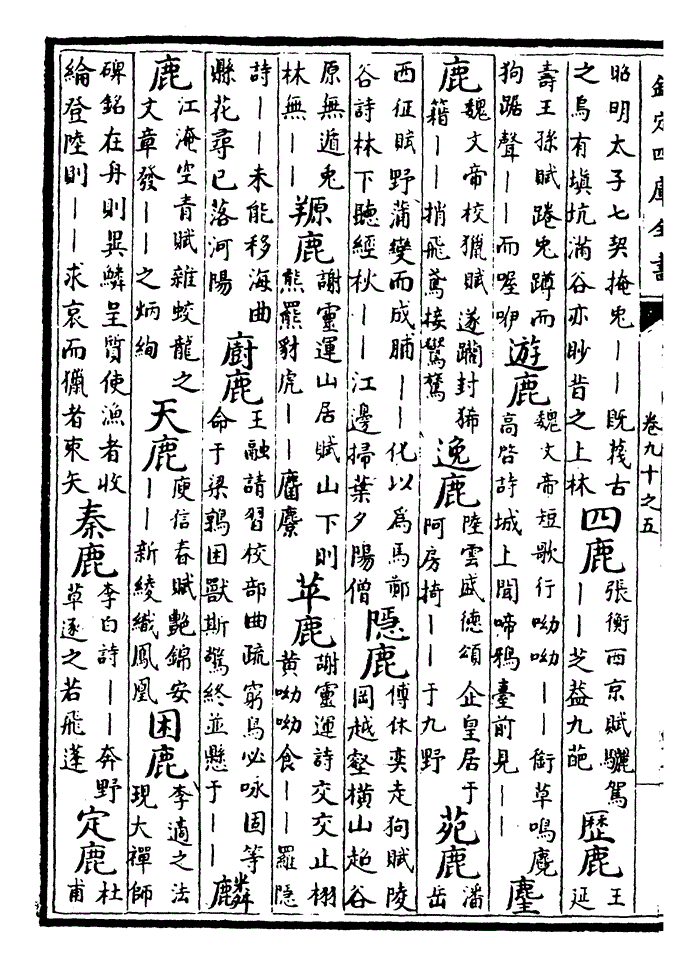 欽定四庫全書
卷九十之五
昭明太子七契掩兎丨丨既㧞古
之烏有塡坑滿谷亦眇昔之上林
四鹿
張衡西京賦驪駕
丨丨芝葢九葩
歴鹿
王
延
壽王孫賦踡兎蹲而
狗踞聲丨丨而喔咿
遊鹿
魏文帝短歌行呦呦丨丨銜草鳴麑
高啓詩城上聞啼鴉臺前見丨丨
麈
鹿
魏文帝校獵賦遂躪封狶
籍丨丨捎飛鳶接鸑鷟
逸鹿
陸雲盛德頌企皇居于
阿房掎丨丨于九野
苑鹿
潘
岳
西征賦野蒲變而成脯丨丨化以為馬鄭
谷詩林下聽經秋丨丨江邊掃葉夕陽僧
隠鹿
傅休奕走狗賦陵
岡越壑橫山超谷
原無遁兎
林無丨丨
羱鹿
謝靈運山居賦山下則
熊羆豺虎丨丨麕麖
苹鹿
謝靈運詩交交止栩
黄呦呦食丨丨羅隠
詩丨丨未能移海曲
縣花尋已落河陽
廚鹿
王融請習校部曲疏窮鳥必咏固等
命于梁鶉困獸斯驚終並懸于丨丨
麟
鹿
江淹空青賦雜蛟龍之
文章發丨丨之炳絢
天鹿
庾信春賦艷錦安
丨丨新綾織鳳凰
困鹿
李適之法
現大禪師
碑銘在舟則異鱗呈質使漁者收
綸登陸則丨丨求哀而獵者束矢
秦鹿
李白詩丨丨奔野
草逐之若飛蓬
定鹿
杜
甫